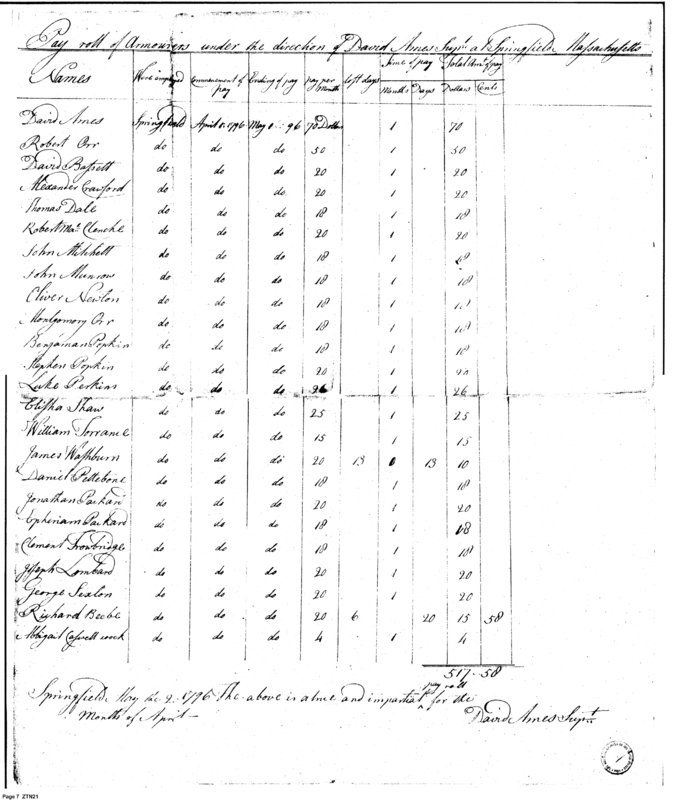 Pay roll of Armourers under the direction of David Ames Supt at Springfield Massachusetts
Names Where employed Commencement of pay Ending of pay pay per Month lost days Time of pay Months Days Total Amt of pay Dollars Cents
David Ames Springfield April 1. 1796 May 1. 96 70 Dollars 1 70
Robert Orr do do do 50 1 50
David Bassett do do do 20 1 20
Alexander Crawford do do do 20 1 20
Thomas Dale do do do 18 1 18
Robert do do do 20 1 20
John Mitchell do do do 18 1 18
John Munrow do do do 18 1 18
Oliver Newton do do do 18 1 18
Montgomory Orr do do do 18 1 18
Benjaman Popkin do do do 18 1 18
Stephen Popkin do do do 20 1 20
Luke Perkins do do do 26 1 26
Elisha Shaw do do do 25 1 25
William Torrance do do do 15 1 15
James Washburn do do do 20 13 0 13 10
Daniel Pettebone do do do 18 1 18
Jonathan Packard do do do 20 1 20
Epheriam Packard do do do 18 1 18
Clement Trowbridge do do do 18 1 18
Joseph Lombard do do do 20 1 20
George Sexton do do do 20 1 20
Richard Beebe do do do 20 6 20 15 58
Abigail Caswell cook do do do 4 1 4
517 - 58
Springfield May the 2. 1796 The above is a true and impartial pay roll for the
Months of April
David Ames Supt
Page 7 ZTN21